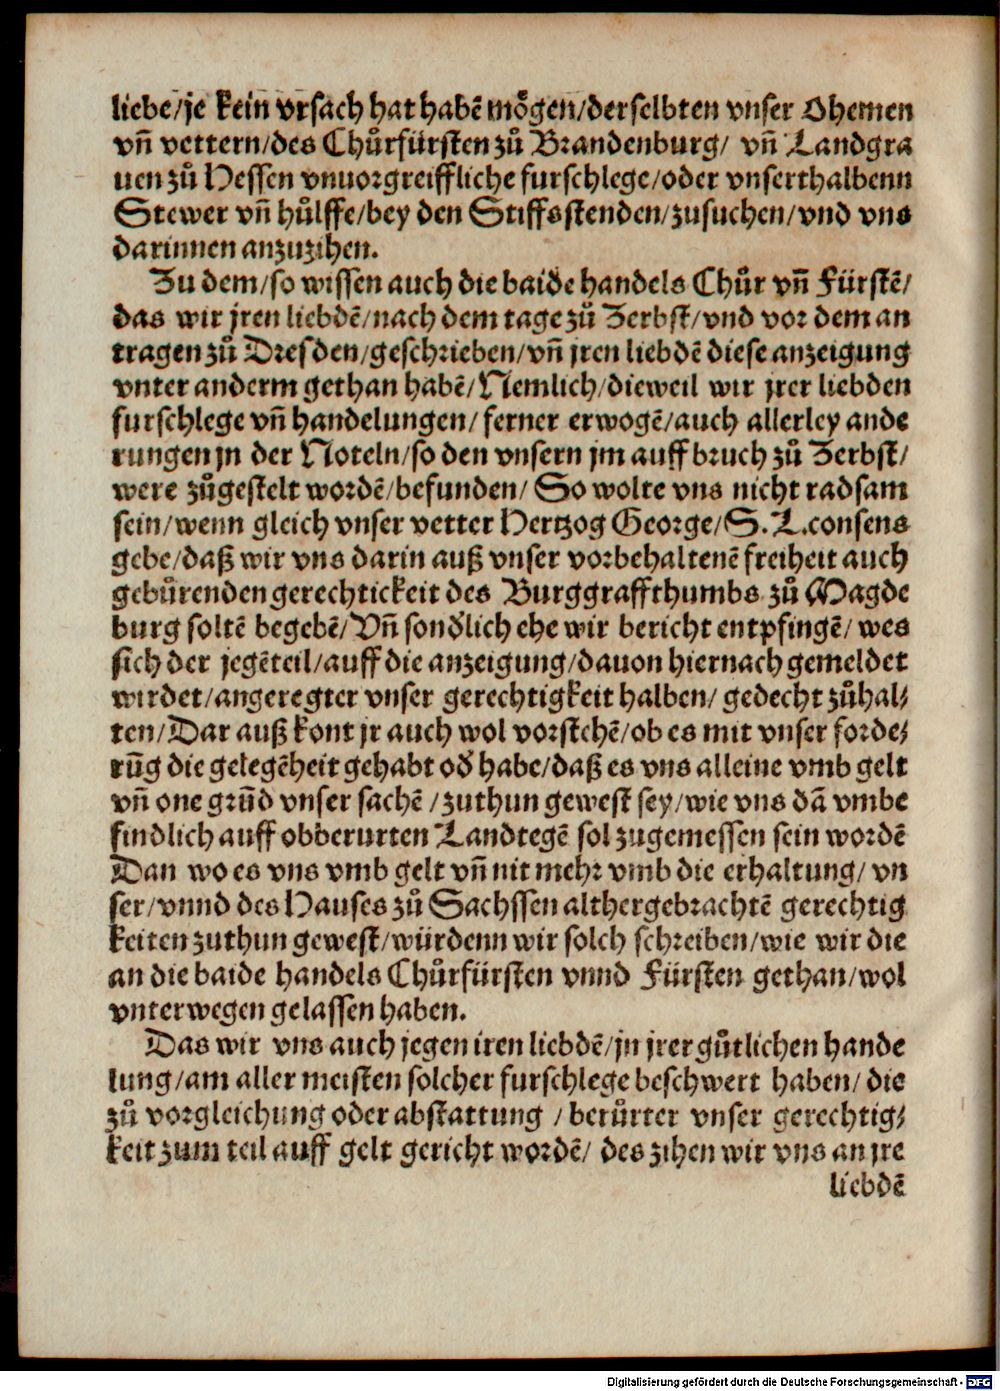 liebe/je kein vrsach hat habẽ moͤgen/derselbten vnser Ohemen
vñ vettern/des Chůrfürsten zů Brandenburg/ vñ Landgra
uen zů Hessen vnuorgreiffliche furschlege/oder vnserthalbenn
Stewer vñ hůlffe/bey den Stiffsstenden/zusuchen/vnd vns
darinnen anzuzihen.
Zu dem/so wissen auch die baide handels Chůr vñ Fürstẽ/
das wir jren liebdẽ/nach dem tage zů Zerbst/vnd vor dem an
tragen zů Dresden/geschrieben/vñ jren liebdẽ diese anzeigung
vnter anderm gethan habẽ/Nemlich/dieweil wir jrer liebden
furschlege vñ handelungen/ ferner erwogẽ/auch allerley ande
rungen jn der Noteln/so den vnsern jm auffbruch zů Zerbst/
were zůgestelt wordẽ/befunden/ So wolte vns nicht radsam
sein/wenn gleich vnser vetter Hertzog George/S. L. consens
gebe/daß wir vns darin auß vnser vorbehaltenẽ freiheit auch
gebůrenden gerechtickeit des Burggraffthumbs zů Magde
burg soltẽ begebẽ/Vñ sonđlich ehe wir bericht entpfingẽ/ wes
sich der jegẽteil/auff die anzeigung/dauon hiernach gemeldet
wirdet/angeregter vnser gerechtigkeit halben/ gedecht zůhal⸗
ten/Dar auß kont jr auch wol vorstehẽ/ob es mit vnser forde⸗
rũg die gelegẽheit gehabt ođ habe/daß es vns alleine vmb gelt
vñ one grũd vnser sachẽ /zuthun gewest sey/wie vns dã vmbe
findlich auff obberurten Landtegẽ sol zugemessen sein wordẽ
Dan wo es vns vmb gelt vñ nit mehr vmb die erhaltung/ vn
ser/vnnd des Hauses zů Sachssen althergebrachtẽ gerechtig
keiten zuthun gewest/würdenn wir solch schreiben/wie wir die
an die baide handels Chůrfürsten vnnd Fürsten gethan/wol
vnterwegen gelassen haben.
Das wir vns auch jegen iren liebdẽ/jn jrer gůtlichen hande
lung/am aller meisten solcher furschlege beschwert haben/ die
zů vorgleichung oder abstattung /berůrter vnser gerechtig⸗
keit zum teil auff gelt gericht wordẽ/ des zihen wir vns an jre
liebdẽ
Digitalisierung gefördert durch die Deutsche Forschungsgemeinschaft - DFG